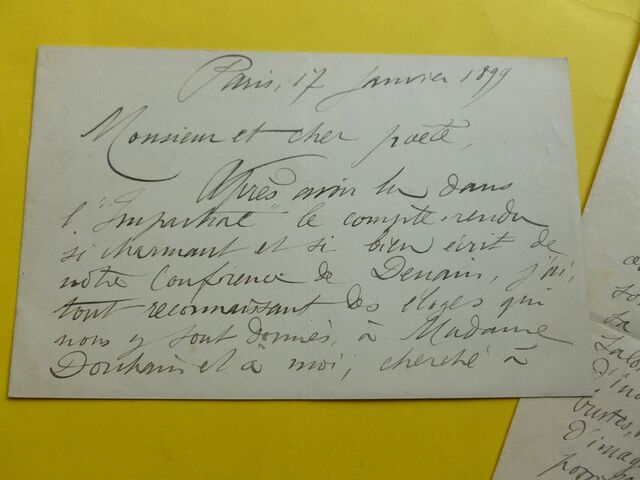 Paris, 17 Janvier 1899
Monsieur et cher poète,
Après avoir lu dans
l'"Impartial" le compte-rendu
si charmant et si bien écrit de
notre Conférence de Denain, j'ai,
tout reconnaissant des éloges qui
nous y sont donnés, à Madame
et à moi, cherché à